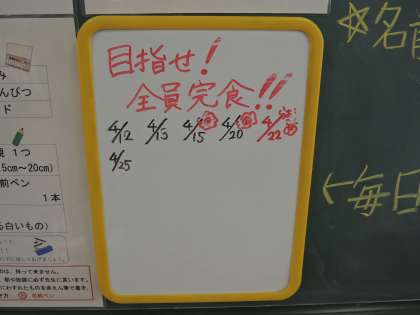 目指せ!
全員完食!!
4/12 4/13 4/15 4/20 4/22
4/25
んぴつ
ド
1つ
5cm~20cm)
前ペン
1本
る白いもの)
名前ペン
☆名
←毎日